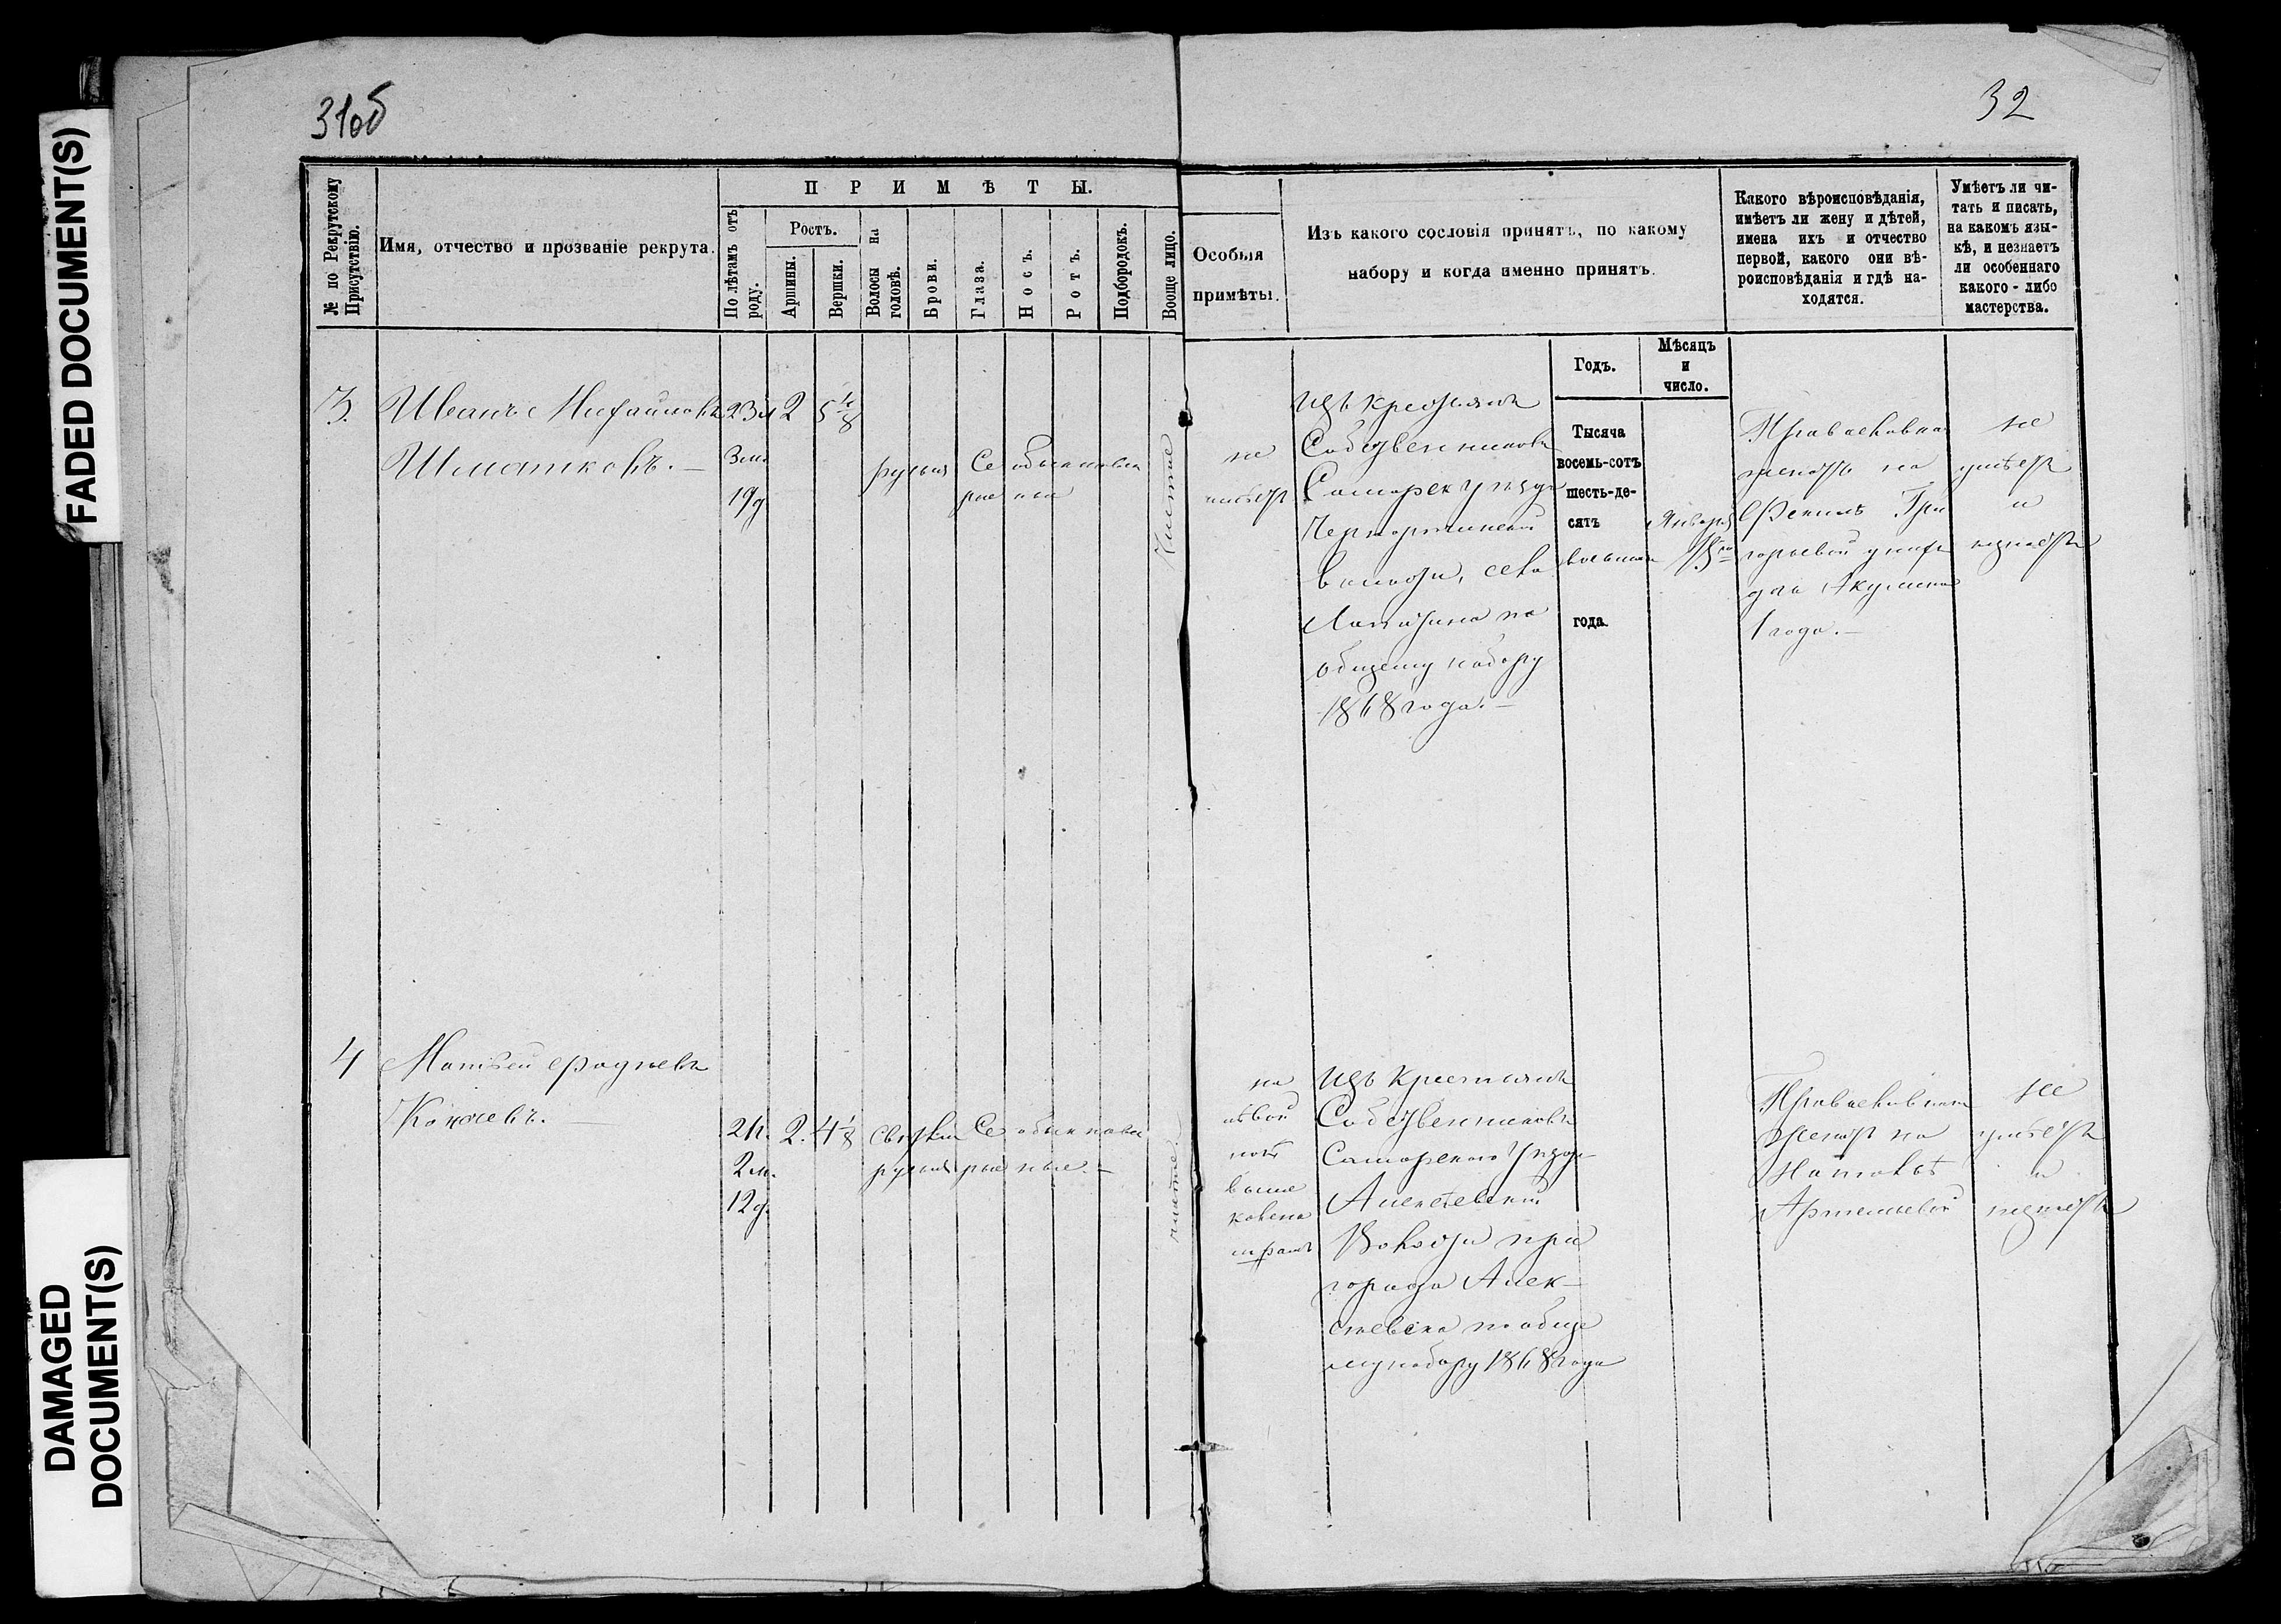 FADED DOCUMENT(S)
DAMAGED
DOCUMENT(S)
31об
32
№ по Рекрутскому
Присутствію.
Имя, отчество и прозваніе рекрута.
ПРИМѢТЫ.
По лѣтамъ отъ
роду.
Ростъ.
Аршины.
Вершки.
Волосы на
головѣ.
Брови.
Глаза.
Носъ.
Ротъ.
Подбородокъ.
Вооще лицо.
Особыя
примѣты.
Изъ какого сословія принятъ, по какому
набору и когда именно принятъ.
Годъ.
Мѣсяцъ
и
число.
Какого вѣроисповѣданія,
имѣетъ ли жену и дѣтей,
имена ихъ и отчество
первой, какого они вѣ-
роисповѣданія и гдѣ на-
ходятся.
Умѣетъ ли чи-
тать и писать,
на какомъ язы-
кѣ, и незнаетъ
ли особеннаго
какого-либо
мастерства.
3.
Иванъ Михайловъ
Шматковъ.
23
3 м.
19 д
2
5 4/8
русыя
Се
рые
обыкновен
ные
Чистое
не
имѣетъ
Изъ крестьянъ
Собственниковъ
Самарск уѣзда
волости, села
по
общему набору
1868 года.
Тысяча
восемь-сотъ
шесть-де-
сятъ
восьмаго
года.
Января
15го
Православнаго
женатъ на
Фекліѣ Гри
горьевой у нихъ
дочь Акулина
1 года.
не
умѣетъ
и
незнаетъ
4
Матвей Фадѣевъ
21 л.
2 м.
12 д.
2.
4 1/8
свѣтло
русыя
Се
рые
обыкновен
ные.
чистое
на
лѣвой
ногѣ
шрамъ
Изъ Крестьянъ
Собственниковъ
Самарскаго уѣзда
Алексѣевской
Волости при
города Алек-
сѣевска по обще
му набору 1868 года
Православнаго
Женатъ на
Артемьевой
не
умѣетъ
и
незнаетъ